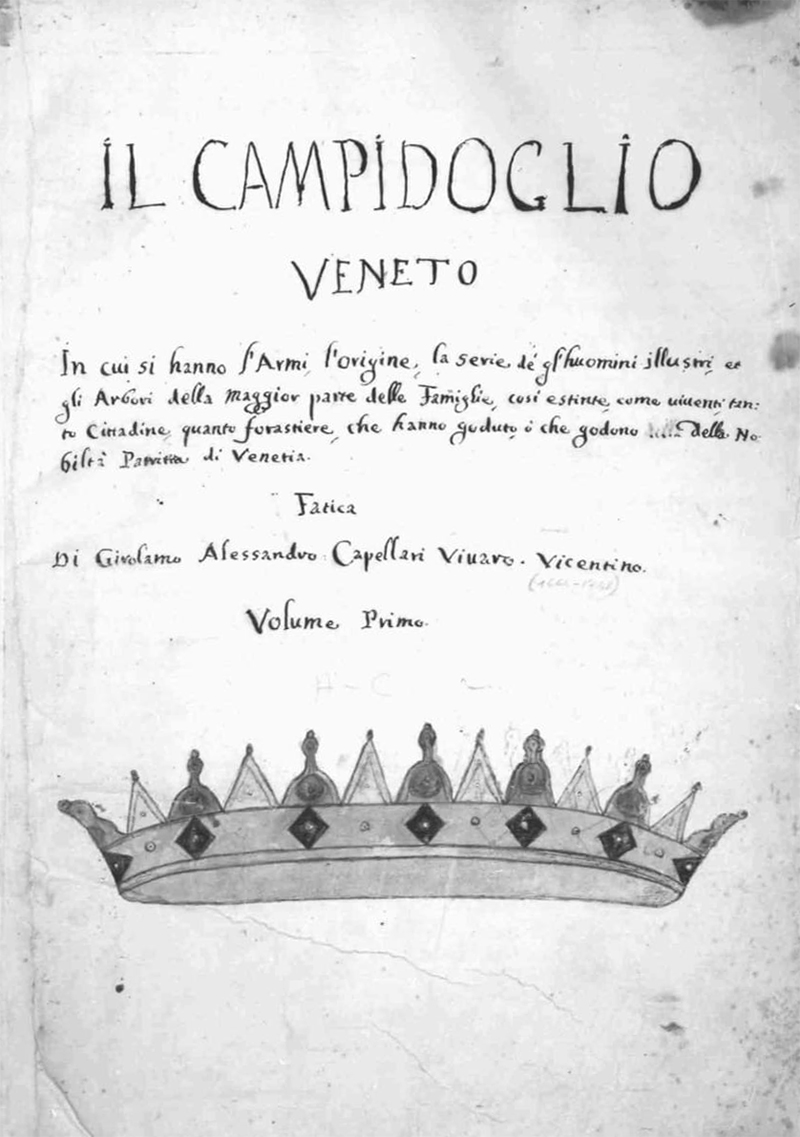 IL CAMPIDOGLIO
VENETO
In cui si hanno l'Armi, l'origine, la serie de' gl'huomini illustri et
gli Arbori della maggior parte delle Famiglie, cosi estinte, come viventi tan:
to Cittadine, quanto forastiere, che hanno goduto ò che godono della No
biltà Patritia di Venetia.
Fatica
Di Girolamo Alessandro Capellari Vivaro. Vicentino.
Volume Primo.
A - C